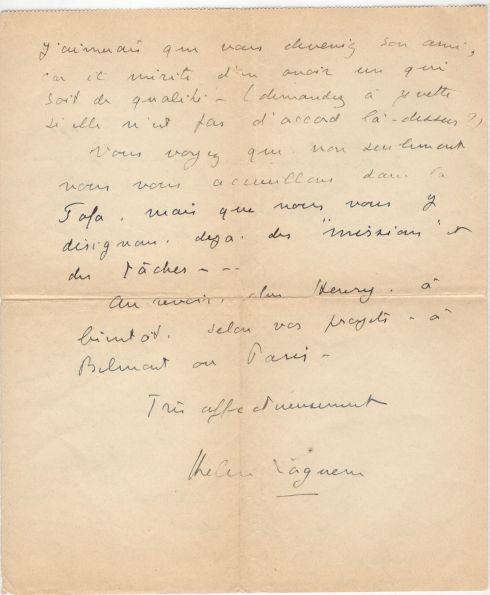 J'aimerais que vous deveniez son ami,
car il mérite d'en avoir un qui
soit de qualité - (demandez à Yvette
si elle n'est pas d'accord là-dessus?)
Vous voyez que non seulement
nous vous accueillons dans la
Tafa, mais que nous vous y
désignons déjà des "missions" et
des tâches - - -
Au revoir, cher Henry, à
bientôt, selon vos projets - à
Belmont ou Paris -
Très affectueusement